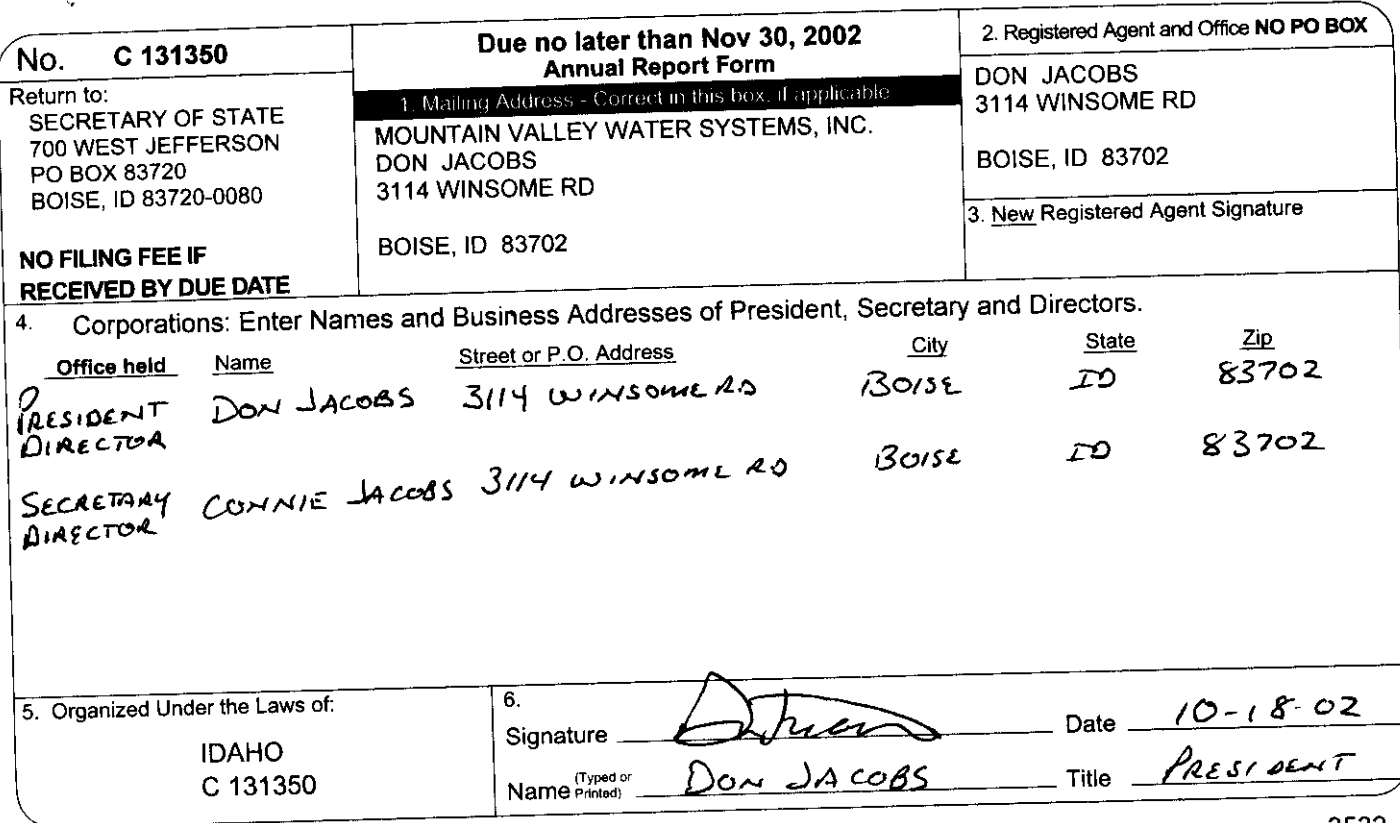 No. C 131350
Return to:
SECRETARY OF STATE
700 WEST JEFFERSON
PO BOX 83720
BOISE, ID 83720-0080
NO FILING FEE IF
RECEIVED BY DUE DATE
Due no later than Nov 30, 2002
Annual Report Form
1. Mailing Address - Correct in this box, if applicable
MOUNTAIN VALLEY WATER SYSTEMS, INC.
DON JACOBS
3114 WINSOME RD
BOISE, ID 83702
2. Registered Agent and Office NO PO BOX
DON JACOBS
3114 WINSOME RD
BOISE, ID 83702
3. New Registered Agent Signature
4. Corporations: Enter Names and Business Addresses of President, Secretary and Directors.
Office held Name Street or P.O. Address City State Zip
PRESIDENT DON JACOBS 3114 WINSOME RD BOISE ID 83702
DIRECTOR
SECRETARY CONNIE JACOBS 3114 WINSOME RD BOISE ID 83702
DIRECTOR
5. Organized Under the Laws of:
IDAHO
C 131350
6.
Signature Date 10-18-02
Name (Typed or Printed) DON JACOBS Title PRESIDENT